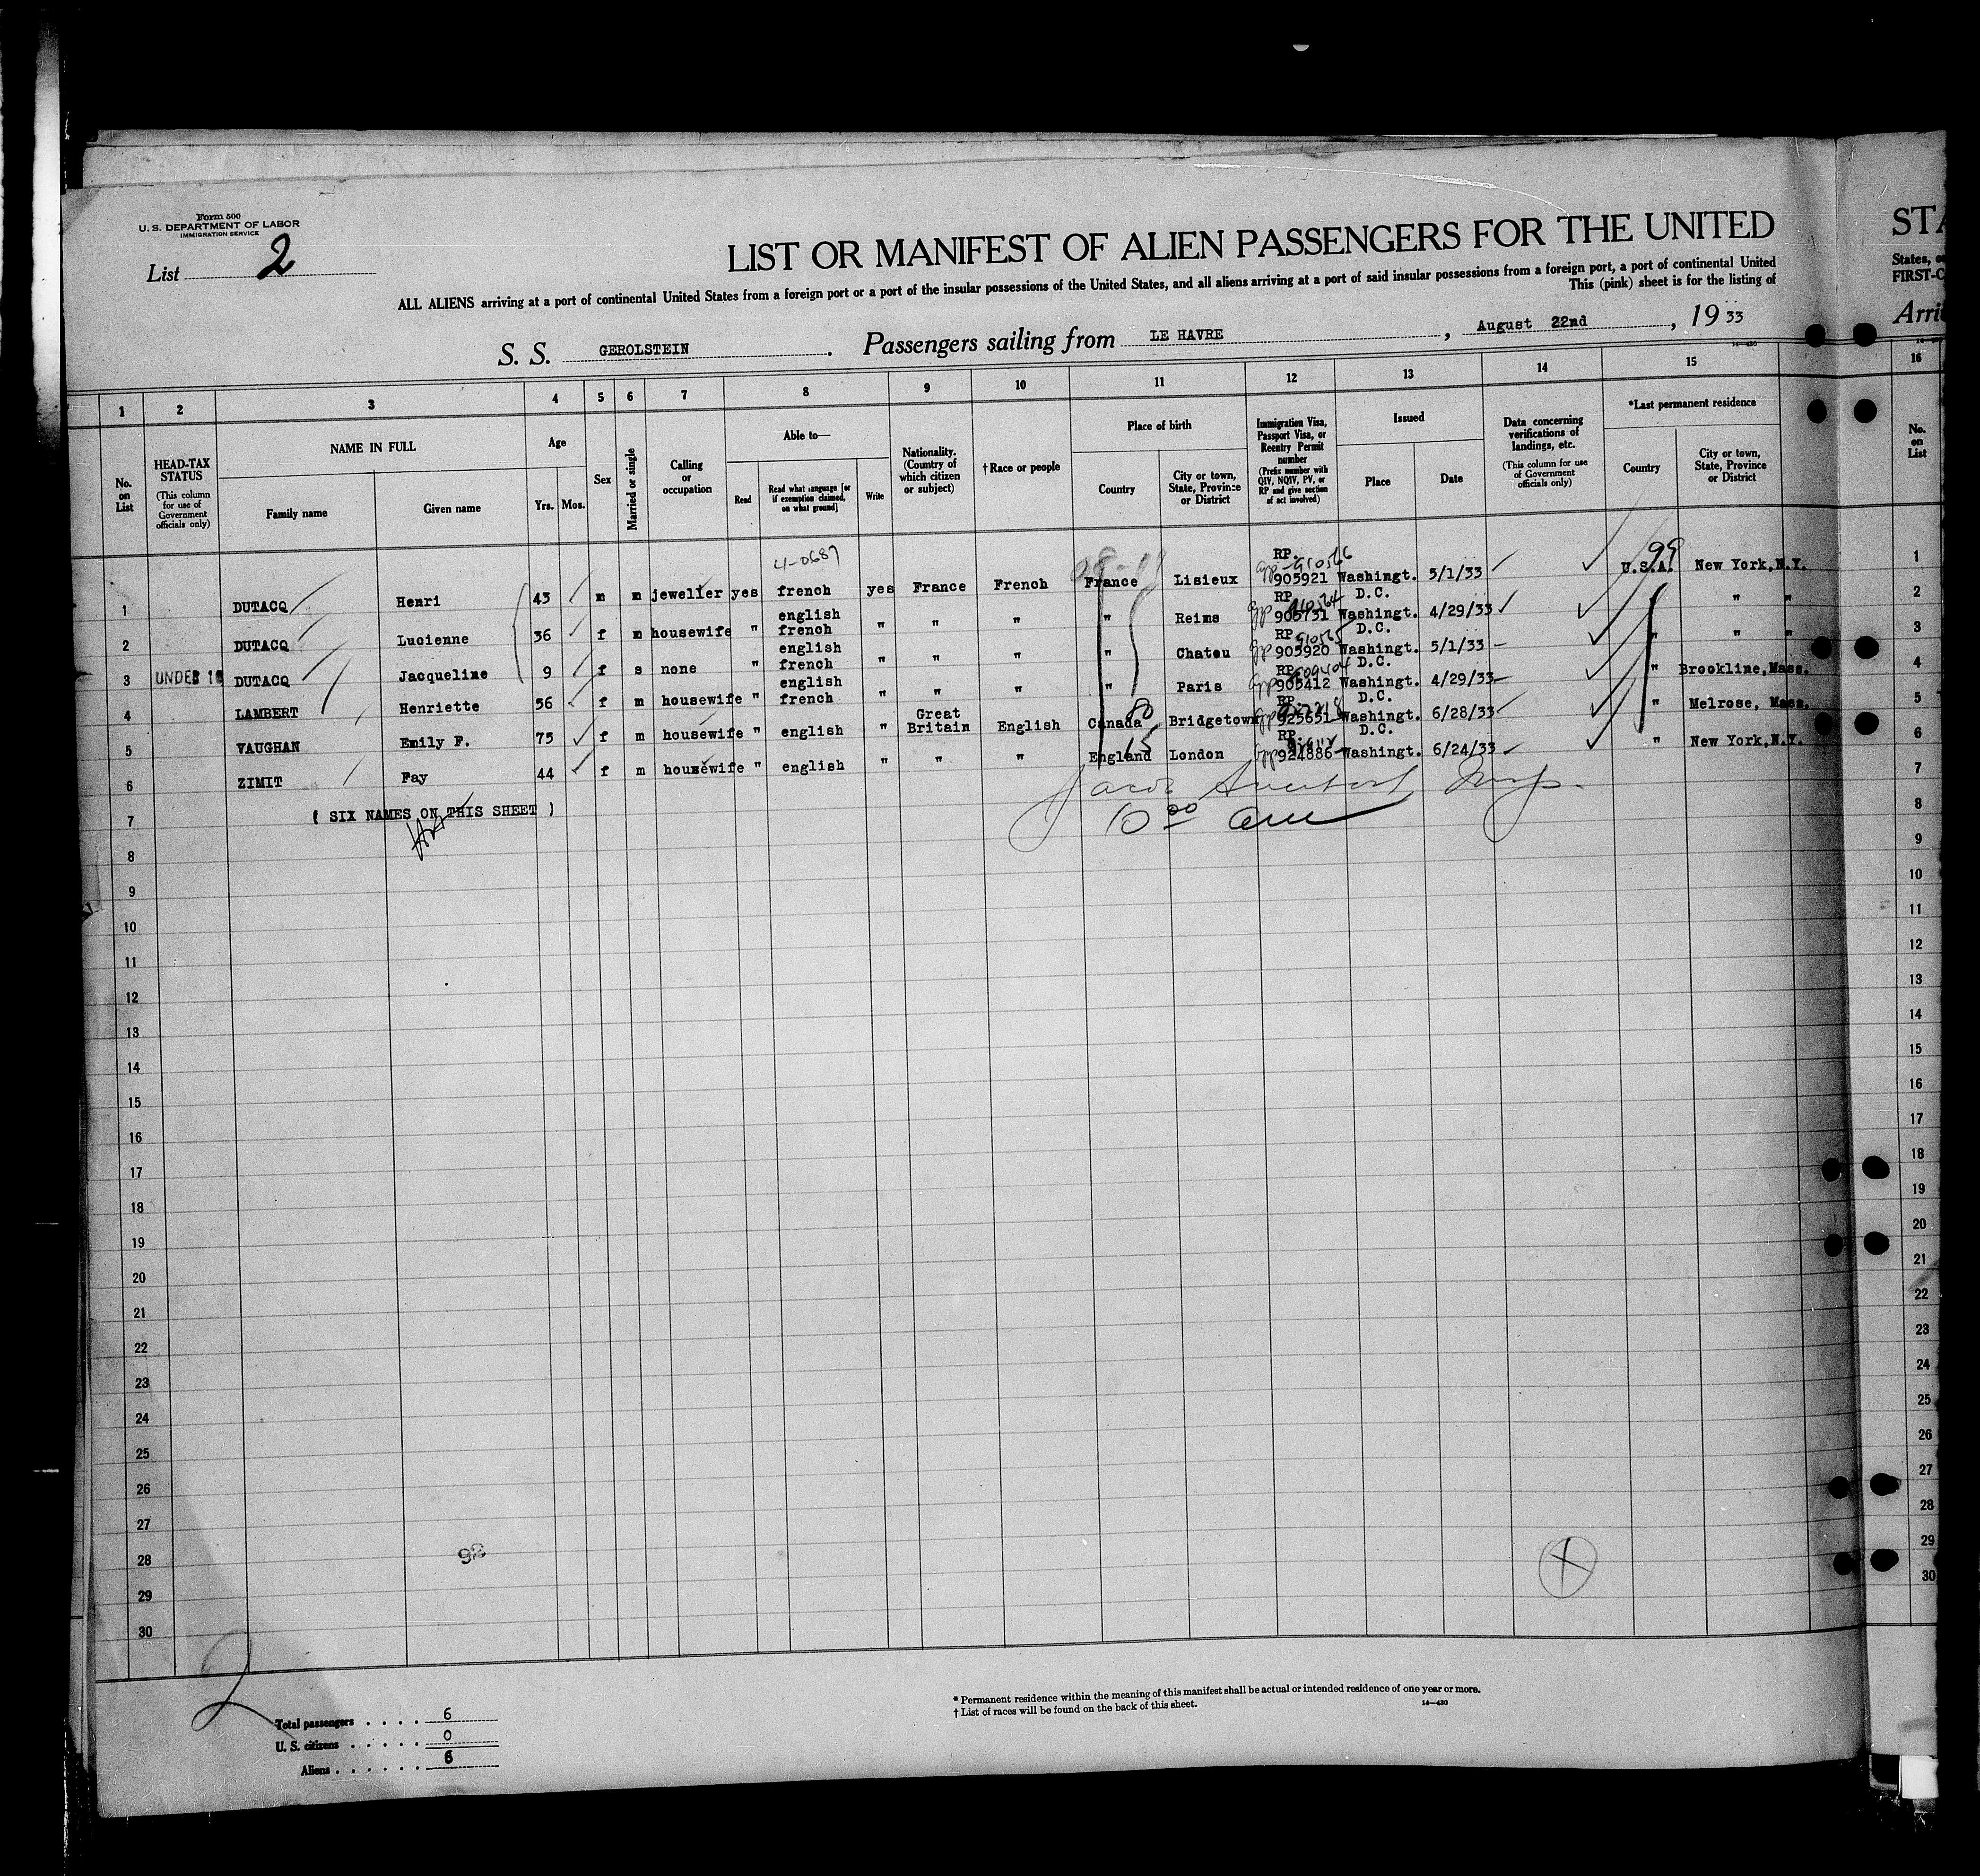 Form 500
U. S. DEPARTMENT OF LABOR
IMMIGRATION SERVICE
List 2
LIST OR MANIFEST OF ALIEN PASSENGERS FOR THE UNITED
STA
ALL ALIENS arriving at a port of continental United States from a foreign port or a port of the insular possessions of the United States, and all aliens arriving at a port of said insular possessions from a foreign port, a port of continental United
States, o
This (pink) sheet is for the listing of
FIRST-C
S. S. GEROLSTEIN. Passengers sailing from LE HAVRE, August 22nd, 19 33
Arri
14—430
1 2 3 4 5 6 7 8 9 10 11 12 13 14 15 16
No. on List
HEAD-TAX STATUS
(This column for use of Government officials only)
NAME IN FULL
Family name Given name
Age
Yrs. Mos.
Sex
Married or single
Calling or occupation
Able to—
Read
Read what language [or if exemption claimed, on what ground]
Write
Nationality. (Country of which citizen or subject)
†Race or people
Place of birth
Country
City or town, State, Province or District
Immigration Visa, Passport Visa, or Reentry Permit number
(Prefix number with QIV, NQIV, PV, or RP and give section of act involved)
Issued
Place Date
Data concerning verifications of landings, etc.
(This column for use of Government officials only)
*Last permanent residence
Country
City or town, State, Province or District
No. on List
4-0687
99
1 DUTACQ Henri 43 m m jewelier yes french english yes France French France Lisieux RP. 905921 Washingt. D.C. 5/1/33 U.S.A. New York,N.Y. 1
2 DUTACQ Lucienne 36 f m housewife " french english " " " " Reims RP 905731 Washingt. D.C. 4/29/33 " " " 2
3 UNDER 16 DUTACQ Jacqueline 9 f s none " french english " " " " Chatou RP 905920 Washingt. D.C. 5/1/33 " " " 3
4 LAMBERT Henriette 56 f m housewife " french english " " " " Paris RP 905412 Washingt. D.C. 4/29/33 " Brookline,Mass. 4
5 VAUGHAN Emily F. 75 f m housewife " english " Great Britain English Canada Bridgetown RP. 925651 Washingt. D.C. 6/28/33 " Melrose, Mass. 5
6 ZIMIT Fay 44 f m housewife " english " " " England London RP. 924886 Washingt. 6/24/33 " New York,N.Y. 6
7 ( SIX NAMES ON THIS SHEET ) 7
10 00 am
8 8
9 9
10 10
11 11
12 12
13 13
14 14
15 15
16 16
17 17
18 18
19 19
20 20
21 21
22 22
23 23
24 24
25 25
26 26
27 27
28 98 28
29 29
30 30
2
* Permanent residence within the meaning of this manifest shall be actual or intended residence of one year or more.
† List of races will be found on the back of this sheet.
14—430
Total passengers . . . . 6
U. S. citizens . . . . . 0
Aliens . . . . . . 6